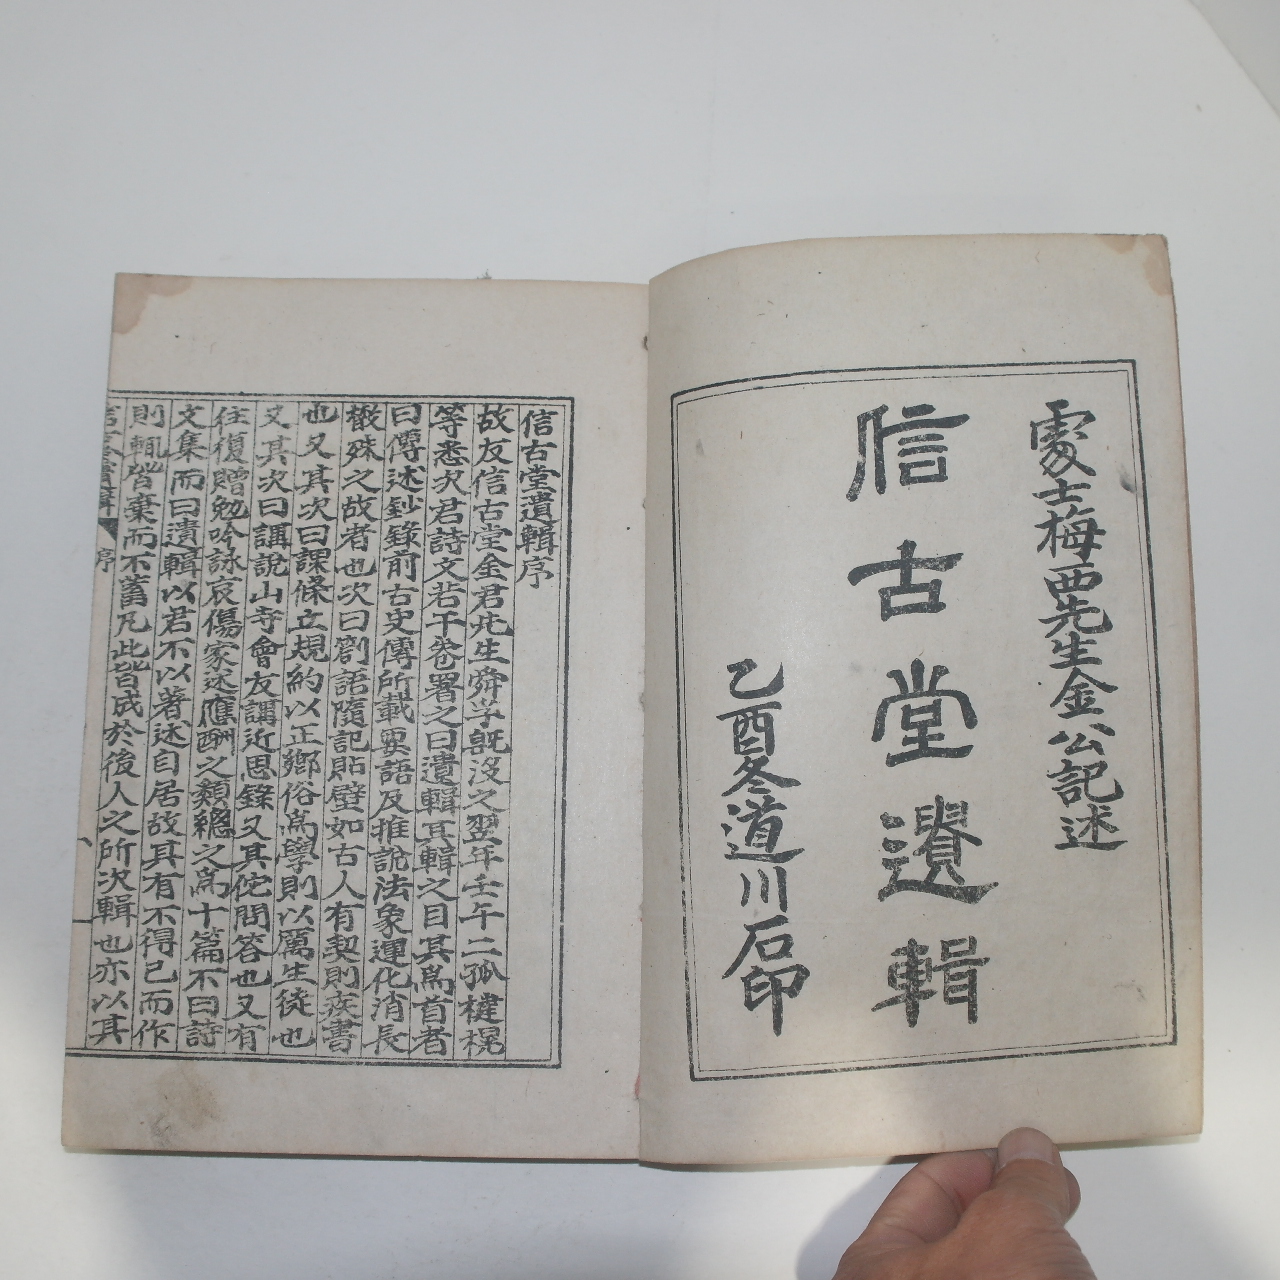 處士梅西先生金公記述
信古堂遺輯
乙酉冬道川石印
信古堂遺輯序
故友信古堂金君片生舜孚旣沒之翌年壬午二孤楗榥
等悉次君詩文若干卷署之曰遺輯其輯之目其爲首者
曰傳述鈔錄前古史傳所載要語及推說法象運化消長
檄殊之故者也次曰劄語隨記貼壁如古人有契則疾書
也又其次曰課條立規約以正鄕俗爲學則以厲生徒也
又其次曰講說山寺會友講近思錄又其佗問答也又有
往復贈勉吟詠哀傷家述應酬之類總之爲十篇不曰詩
文集而曰遺輯以君不以著述自居故其有不得已而作
則輒皆棄而不蓄凡此皆成於後人之所次輯也亦以其
序